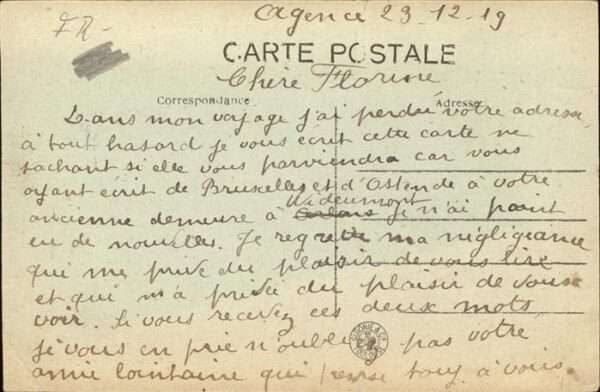 FR-
Agence 23-12-19
CARTE POSTALE
Chère Florine
Correspondance
Adresse
Dans mon voyage j'ai perdu votre adresse,
à tout hasard je vous écrit cette carte ne
sachant si elle vous parviendra car vous
ayant écrit de Bruxelles et d'Ostende à votre
Wideumont
ancienne demeure à je n'ai point
eu de nouvelles. Je regrette ma négligeance
qui me prive du plaisir de vous lire
et qui m'a privée du plaisir de vous
voir. Si vous recevez ces deux mots,
je vous en prie n'oubliez pas votre
amie lointaine qui pense touj. à vous.